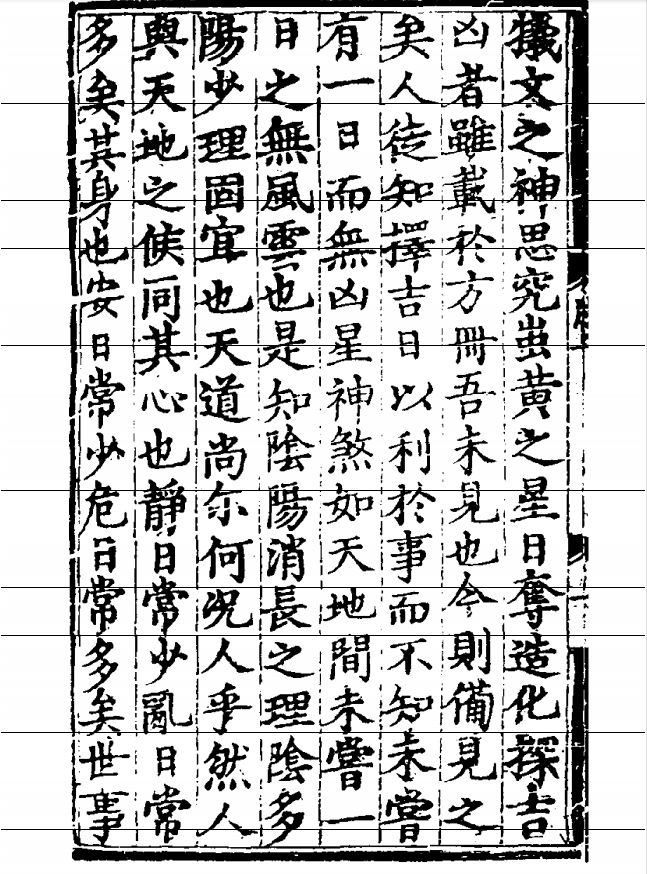 犠文之神思究蚩黃之星日奪造化探吉
凶者雖載於方冊吾未見也今則備見之
矣人徒知擇吉日以利於事而不知未嘗
有一日而無凶星神煞如天地間未嘗一
日之無風雲也是知陰陽消長之理陰多
陽少理固宜也天道尚尓何况人乎然人
與天地之俟同其心也靜日常少亂日常
多矣其身也安日常少危日常多矣世事